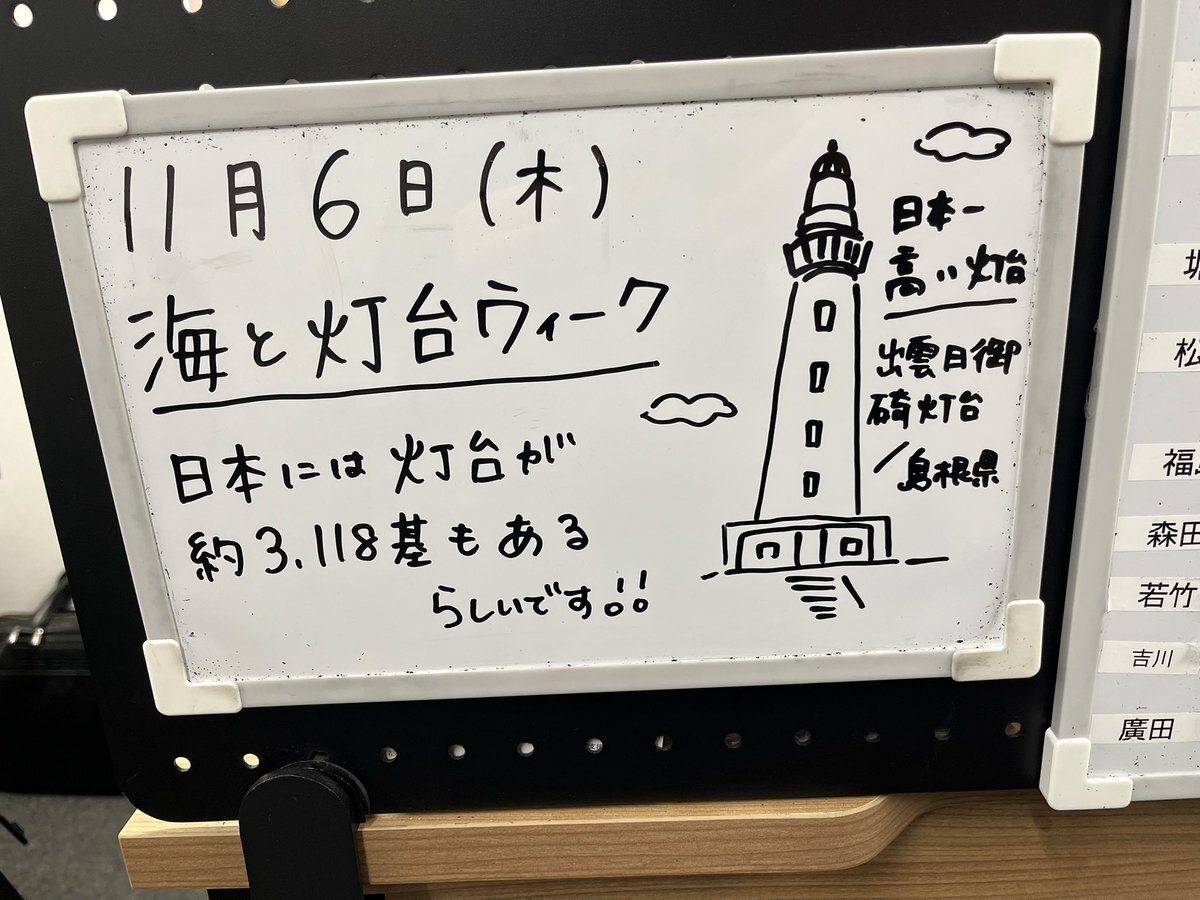 11月6日(木)
海と灯台ウィーク
日本には灯台が
約3,118基もある
らしいです!!
日本一
高い灯台
出雲日御
碕灯台
/島根県
松
福
森田
若竹
吉川
廣田